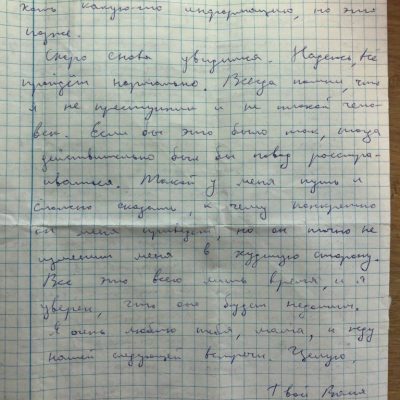 хоть какую-то информацию, но это
позже.
Скоро снова увидимся. Надеюсь, всё
пройдёт нормально. Всегда помни, что
я не преступник и не плохой чело-
век. Если бы это было так, тогда
действительно был бы повод расстра-
иваться. Такой у меня путь и
сложно сказать, к чему конкретно
он меня приведёт, но он точно не
изменит меня в худшую сторону.
Всё это всего лишь время, и я
уверен, что оно будет недолгим.
Я очень люблю тебя, мама, и жду
нашей следующей встречи. Целую,
Твой Ваня